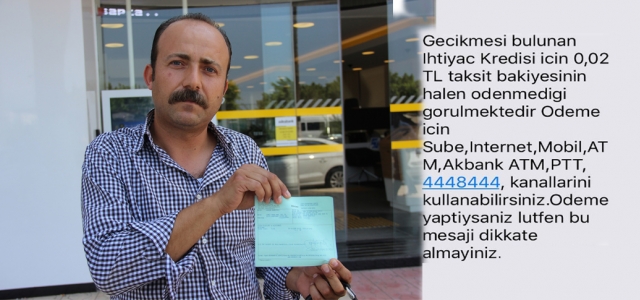 Gecikmesi bulunan
Ihtiyac Kredisi icin 0,02
TL taksit bakiyesinin
halen odenmedigi
gorulmektedir Odeme
icin
Sube,Internet,Mobil,AT
M,Akbank ATM,PTT,
4448444, kanallarini
kullanabilirsiniz.Odeme
yaptiysaniz lutfen bu
mesaji dikkate
almayiniz.